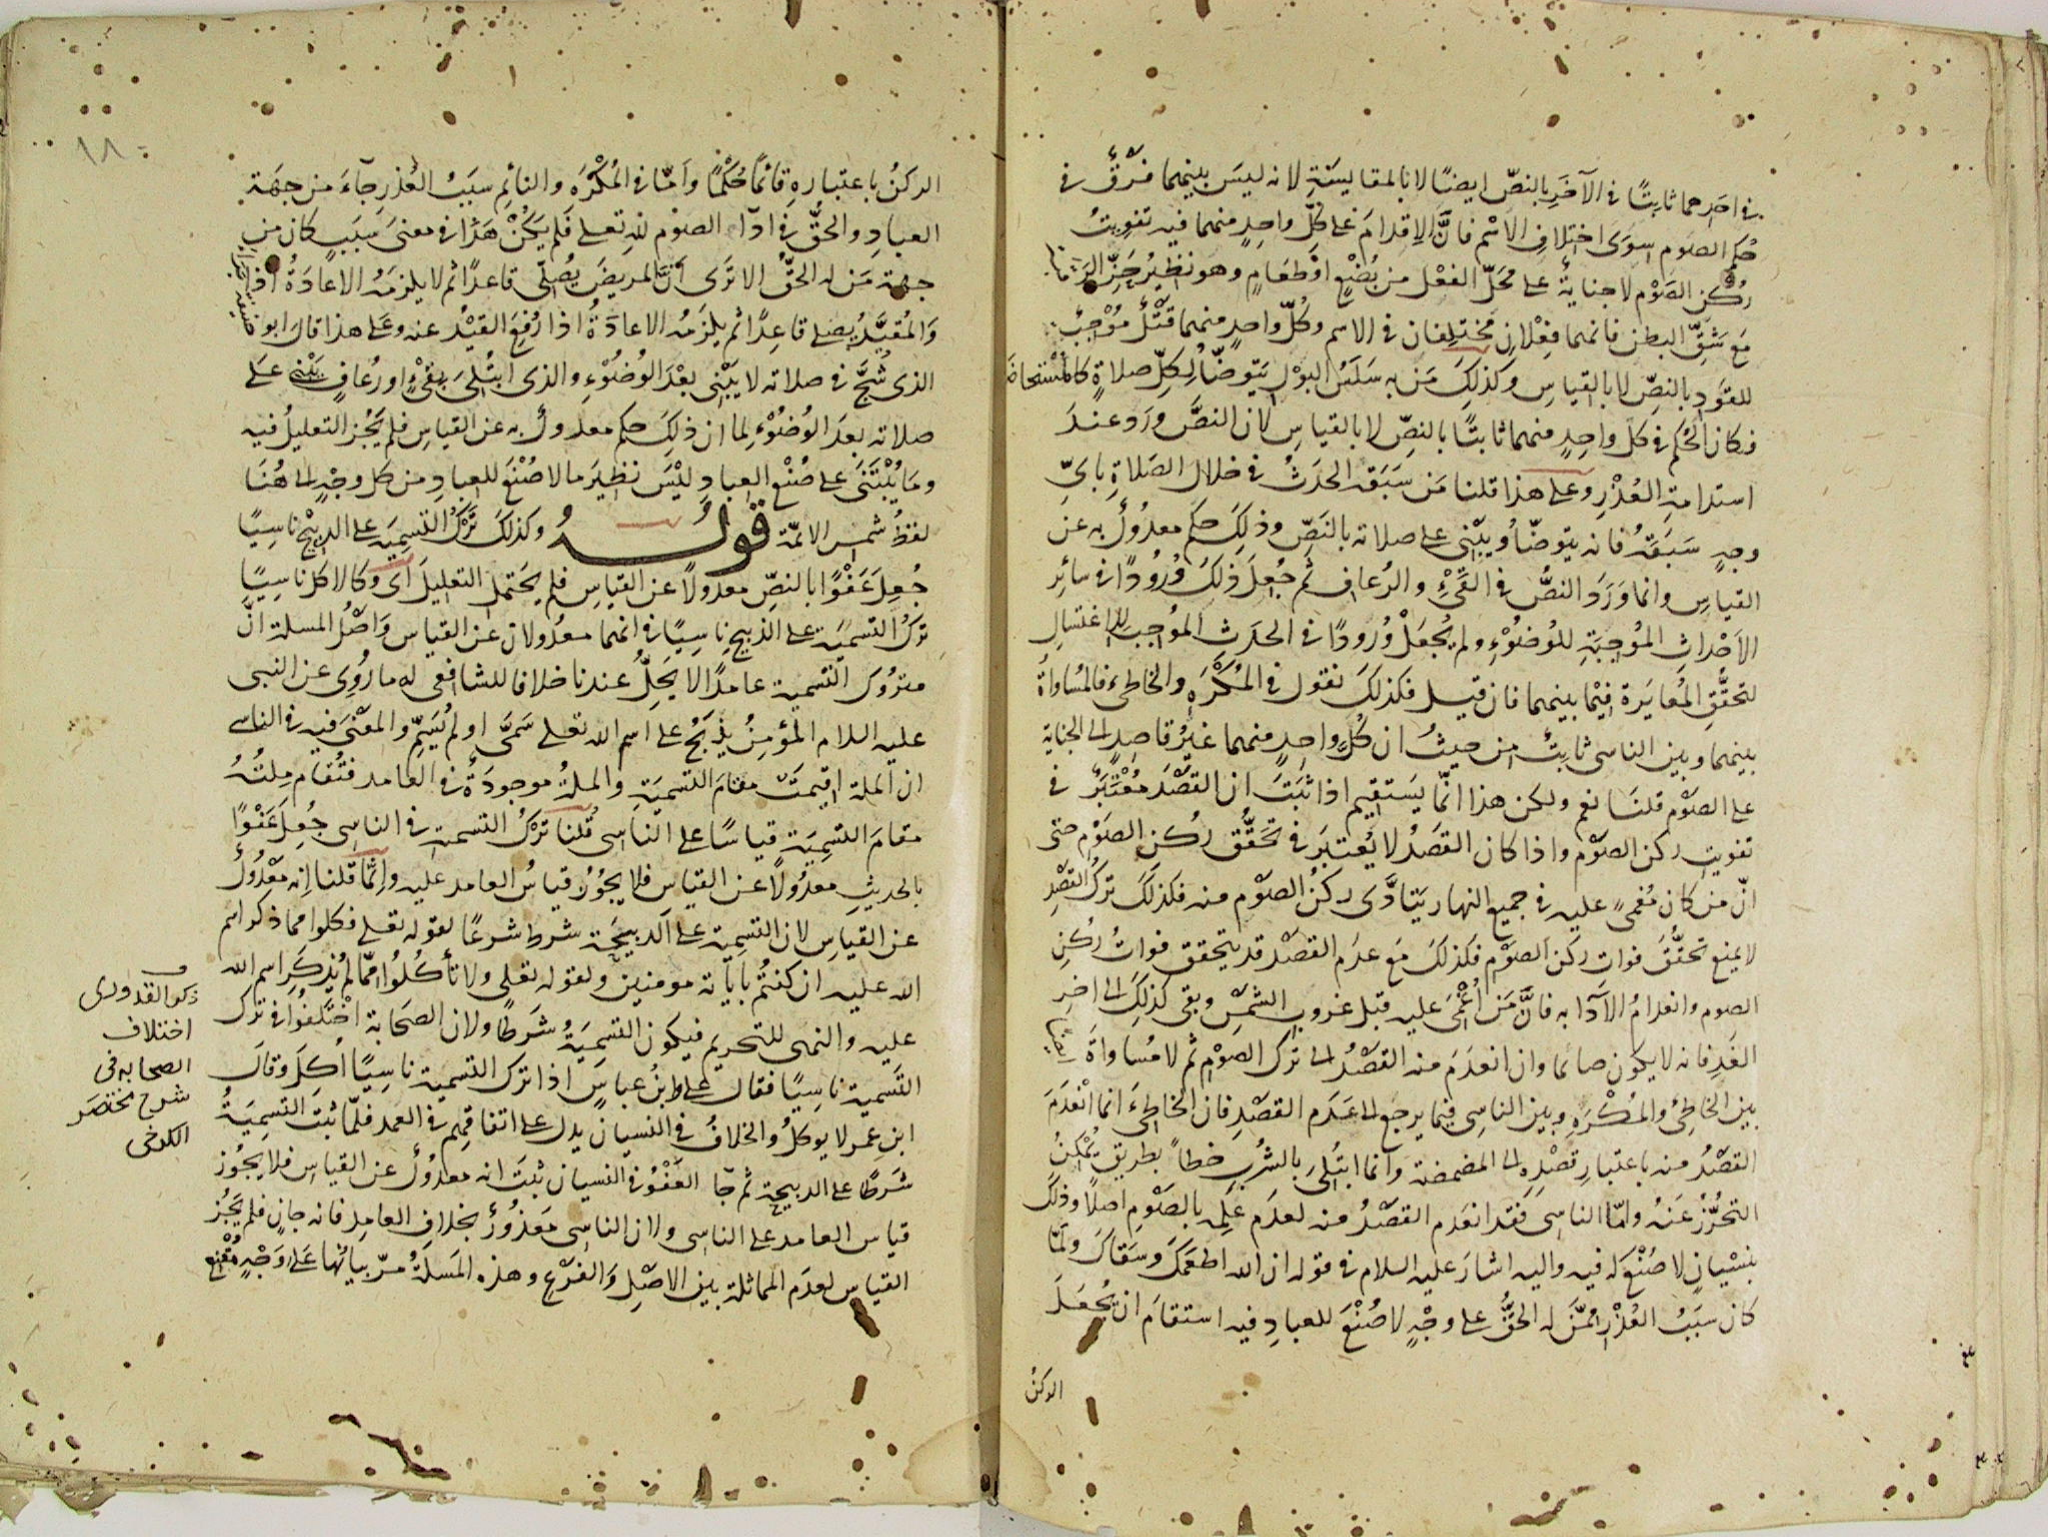 في احدهما ثابتًا في الآخَرِ بالنصّ ايضًا لا بالمقايسَةِ لانه ليسَ بينهما فَرْقٌ في
حُكم الصَوم سِوَى اختلافِ الاسْم فانَّ الإقدامَ على كلِّ واحدٍ منهما فيه تفويتُ
رُكنِ الصَوْم لا جنايةٌ على مَحلّ الفِعْل من بُضْعٍ او طَعامٍ وهو نظيرُ حَزِّ الرَقبة
مَع شَقِّ البطنِ فانهما فِعْلانِ مختلِفان في الاسم وكُلُّ واحدٍ منهما قَتْلٌ مُوْجِبٌ
للقَوَدِ بالنصِّ لا بالقياسِ وكذلِكَ مَن به سَلَسُ البَوْلِ يَتوضّأُ لِكلِّ صلاةٍ كالمُسْتحاضَة
فكان الحُكم في كل واحِدٍ منهما ثابتًا بالنصِّ لا بالقياسِ لان النصَّ ورَد عندَ
استدامةِ العُذْرِ وعلى هذا قلنا مَن سَبَقه الحدَثُ في خلال الصَلاةِ بايّ
وجهٍ سَبَقَهُ فانه يتوضّأُ ويَبْني على صلاته بالنَصِّ وذلِكَ حكم معدُولٌ به عن
القياسِ وانما وَرَدَ النصُّ في القَيْءِ والرُعافِ ثم جُعِلَ ذلِكَ وُرُودًا في سائرِ
الأحْداثِ المُوجِبَةِ للوُضوْءِ ولم يُجعَلْ وُرُودًا في الحدَثِ المُوجِبِ للاغتسالِ
لتحقُّقِ المُغايَرةِ فيْما بينهما فان قيل فكذلكَ نقول في المُكْرَهِ والخاطِئ فالمُساواةُ
بينهما وبين الناسي ثابتٌ من حيثُ ان كُلَّ واحِدٍ منهما غيرُ قاصِدٍ الى الجنايةِ
على الصَوْم قلنا نعم ولكن هذا انّما يَستقيم اذا ثَبَتَ ان القَصْدَ مُعْتَبَرٌ في
تفويتِ ركن الصَوْم واذا كان القَصْدُ لا يُعتبَر في تَحقُّق رُكنِ الصَوْم حتى
انّ مَن كان مُغمىً عليه في جميع النهار يَتأدَّى ركنُ الصَوْم منه فكذلكَ تركُ القَصْدِ
لا يَمنع تحقُّقَ فواتِ ركن الصَوْم فكذلكَ مَع عدَم القصْد قد يتحقق فواتُ رُكنِ
الصوم وانعدامُ الأدآ به فانَّ مَن أُغْمِيَ عليه قبل غروبِ الشمْسِ وبقي كذلِكَ الى اخِر
الغَدِ فانه لا يكون صائما وان انعدَمَ منه القَصْدُ الى تَرْكِ الصَوْمِ ثم لا مُساواةَ ايضًا
بين الخاطِئِ والمُكْرَهِ وبين الناسِي فيما يرجع الى عَدَمِ القصْدِ فان الخاطِئَ انما انْعدَمَ
القصْدُ منه باعتبارِ قصْدِه الى المضمضة وانما ابتُلِيَ بالشُربِ خطأً بطريقٍ يُمْكِنُ
التحرُّزُ عَنْهُ وامّا الناسي فقد انعَدم القصْدُ منه لعدَم عِلمِه بالصَوْمِ اصلًا وذلكَ
بنسْيانٍ لا صُنْعَ له فيه واليه اشارَ عليه السلام في قوله ان الله اطعَمَكَ وسَقاكَ ولَمّا
كان سَبَبُ العُذْرِ ممّن له الحَقُّ على وجْهٍ لا صُنْعَ للعبادِ فيه استقامَ ان يُجعَلَ
الركنُ
١٨٠
الركنُ باعتبارِهِ قائمًا حُكْمًا وأمّا في المُكْرَهِ والنائمِ سَبَبُ العُذرِ جآءَ من جهَةِ
العبادِ والحقُّ في ادآء الصَوْم لله تعلى فلم يَكُنْ هَذا في معنىَ سَبَبٍ كان من
جهة مَن له الحقُّ الا تَرَى أنّ المريضَ يُصلّي قاعدًا ثم لا يلزمُه الاعادَةُ اذا برأ
وَالمُقيَّدُ يصلي قاعِدًا ثم يلزَمُه الاعادَةُ اذا رُفِعَ القَيْدُ عنه وعلى هذا قالَ ابو حنيفة
الذي شُجَّ في صلاته لا يَبْني بعْدَ الوُضوْءِ والذي ابتُليَ بقَيْءٍ او رُعافٍ يَبْني على
صلاته بعدَ الوُضوْءِ لِما ان ذلكَ حكم معدولٌ به عن القياسِ فلم يَجُزِ التعليلُ فيه
ومَا يُبْتَنَى على صُنْعِ العبادِ ليْسَ نظيرَ ما لا صُنْعَ للعبادِ من كل وجْهٍ الى هُنَا
لفظُ شمس الائمّة قولُــهُ وكذلكَ تَرْكُ التسمِيَةِ على الذبحْ ناسيًا
جُعِلَ عَفْوًا بالنصِّ معدولًا عن القياسِ فلم يَحتمِلِ التعليلَ أي وكالاكل ناسِيًا
تركُ التسميَة على الذبيح ناسِيًا في انهما معدُولان عن القياسِ وَاصْلُ المسلة انّ
متروُكَ التسمية عامدًا لا يَحِلُّ عندنا خلافا للشافعي له ما رُوِيَ عن النبي
عليه السلام المؤمنُ يذبَحُ على اسم الله تعلى سَمَّى او لم يُسَمّ والمعْنَى فيه في الناسي
ان الملة اقيمَتْ مقامَ التسمِيَةِ والملةُ موجودَةٌ في العامد فتُقام مِلتُهُ
مقامَ التسمِيَة قياسًا على الناسي قُلنا تَرْكُ التسمية في الناسي جُعِلَ عَفْوًا
بالحديثِ معدُولًا عن القياسِ فلا يجوُزُ قياسُ العامد عليه وإنّما قلنا إنه معْدُولٌ
عن القياسِ لان التسمية على الذبيحَة شرط شرعًا لقوله تعلى فكلوا مما ذكر اسم
الله عليه ان كنتُم بآياته مومنين ولقوله تعلى ولا تأكُلُوا مِمّا لم يُذكَرِ اسم الله
عليه والنهى للتحريم فيكون التسمِيَةُ شَرطًا ولان الصَحابة اخْتلَفُوا في ترك
التسمية ناسِيًا فقال على وابنُ عباسٍ اذا ترك التسمية ناسِيًا اُكِلَ وقالَ
ابن عمر لا يوكلُ والخلافُ في النسيان يدل على اتفاقهم في العمد فلمّا ثبت التسمِيَةُ
شَرطًا على الذبيحة ثم جآ العَفْوُ في النسيان ثبَتَ انه معدُولٌ عن القياس فلا يجوُز
قياس العامد على الناسي ولان الناسي مَعذورٌ بخلافِ العامِد فانه جانٍ فلم يَجُزِ
القياس لعدَم المماثلة بين الاصْلِ وَالفَرْعِ وهذه المَسلةُ مرّ بيانُها عَلى وَجْهٍ مُقْنِع
ذكر القدورى
اختلاف
الصحابه فى
شرح مختصر
الكرخى